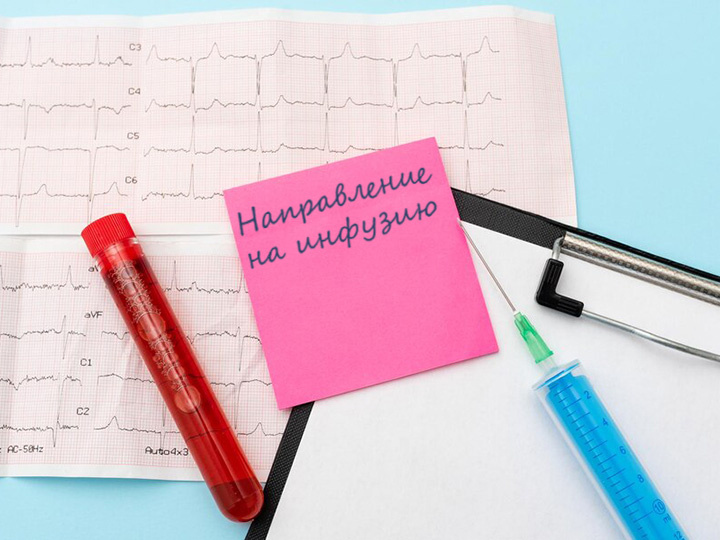 C3
C4
C5
C6
Направление
на инфузию
aVF
C1
C2
AC-50Hz
Auto4x3
2
4
10